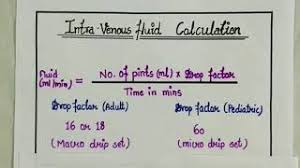 Intra-Venous fluid Calculation
Fluid (ml/min) = No. of pints (ml) x Drop factor
Time in mins
Drop factor (Adult) Drop factor (Pediatric)
16 or 18 60
(Macro drip set) (micro drip set)